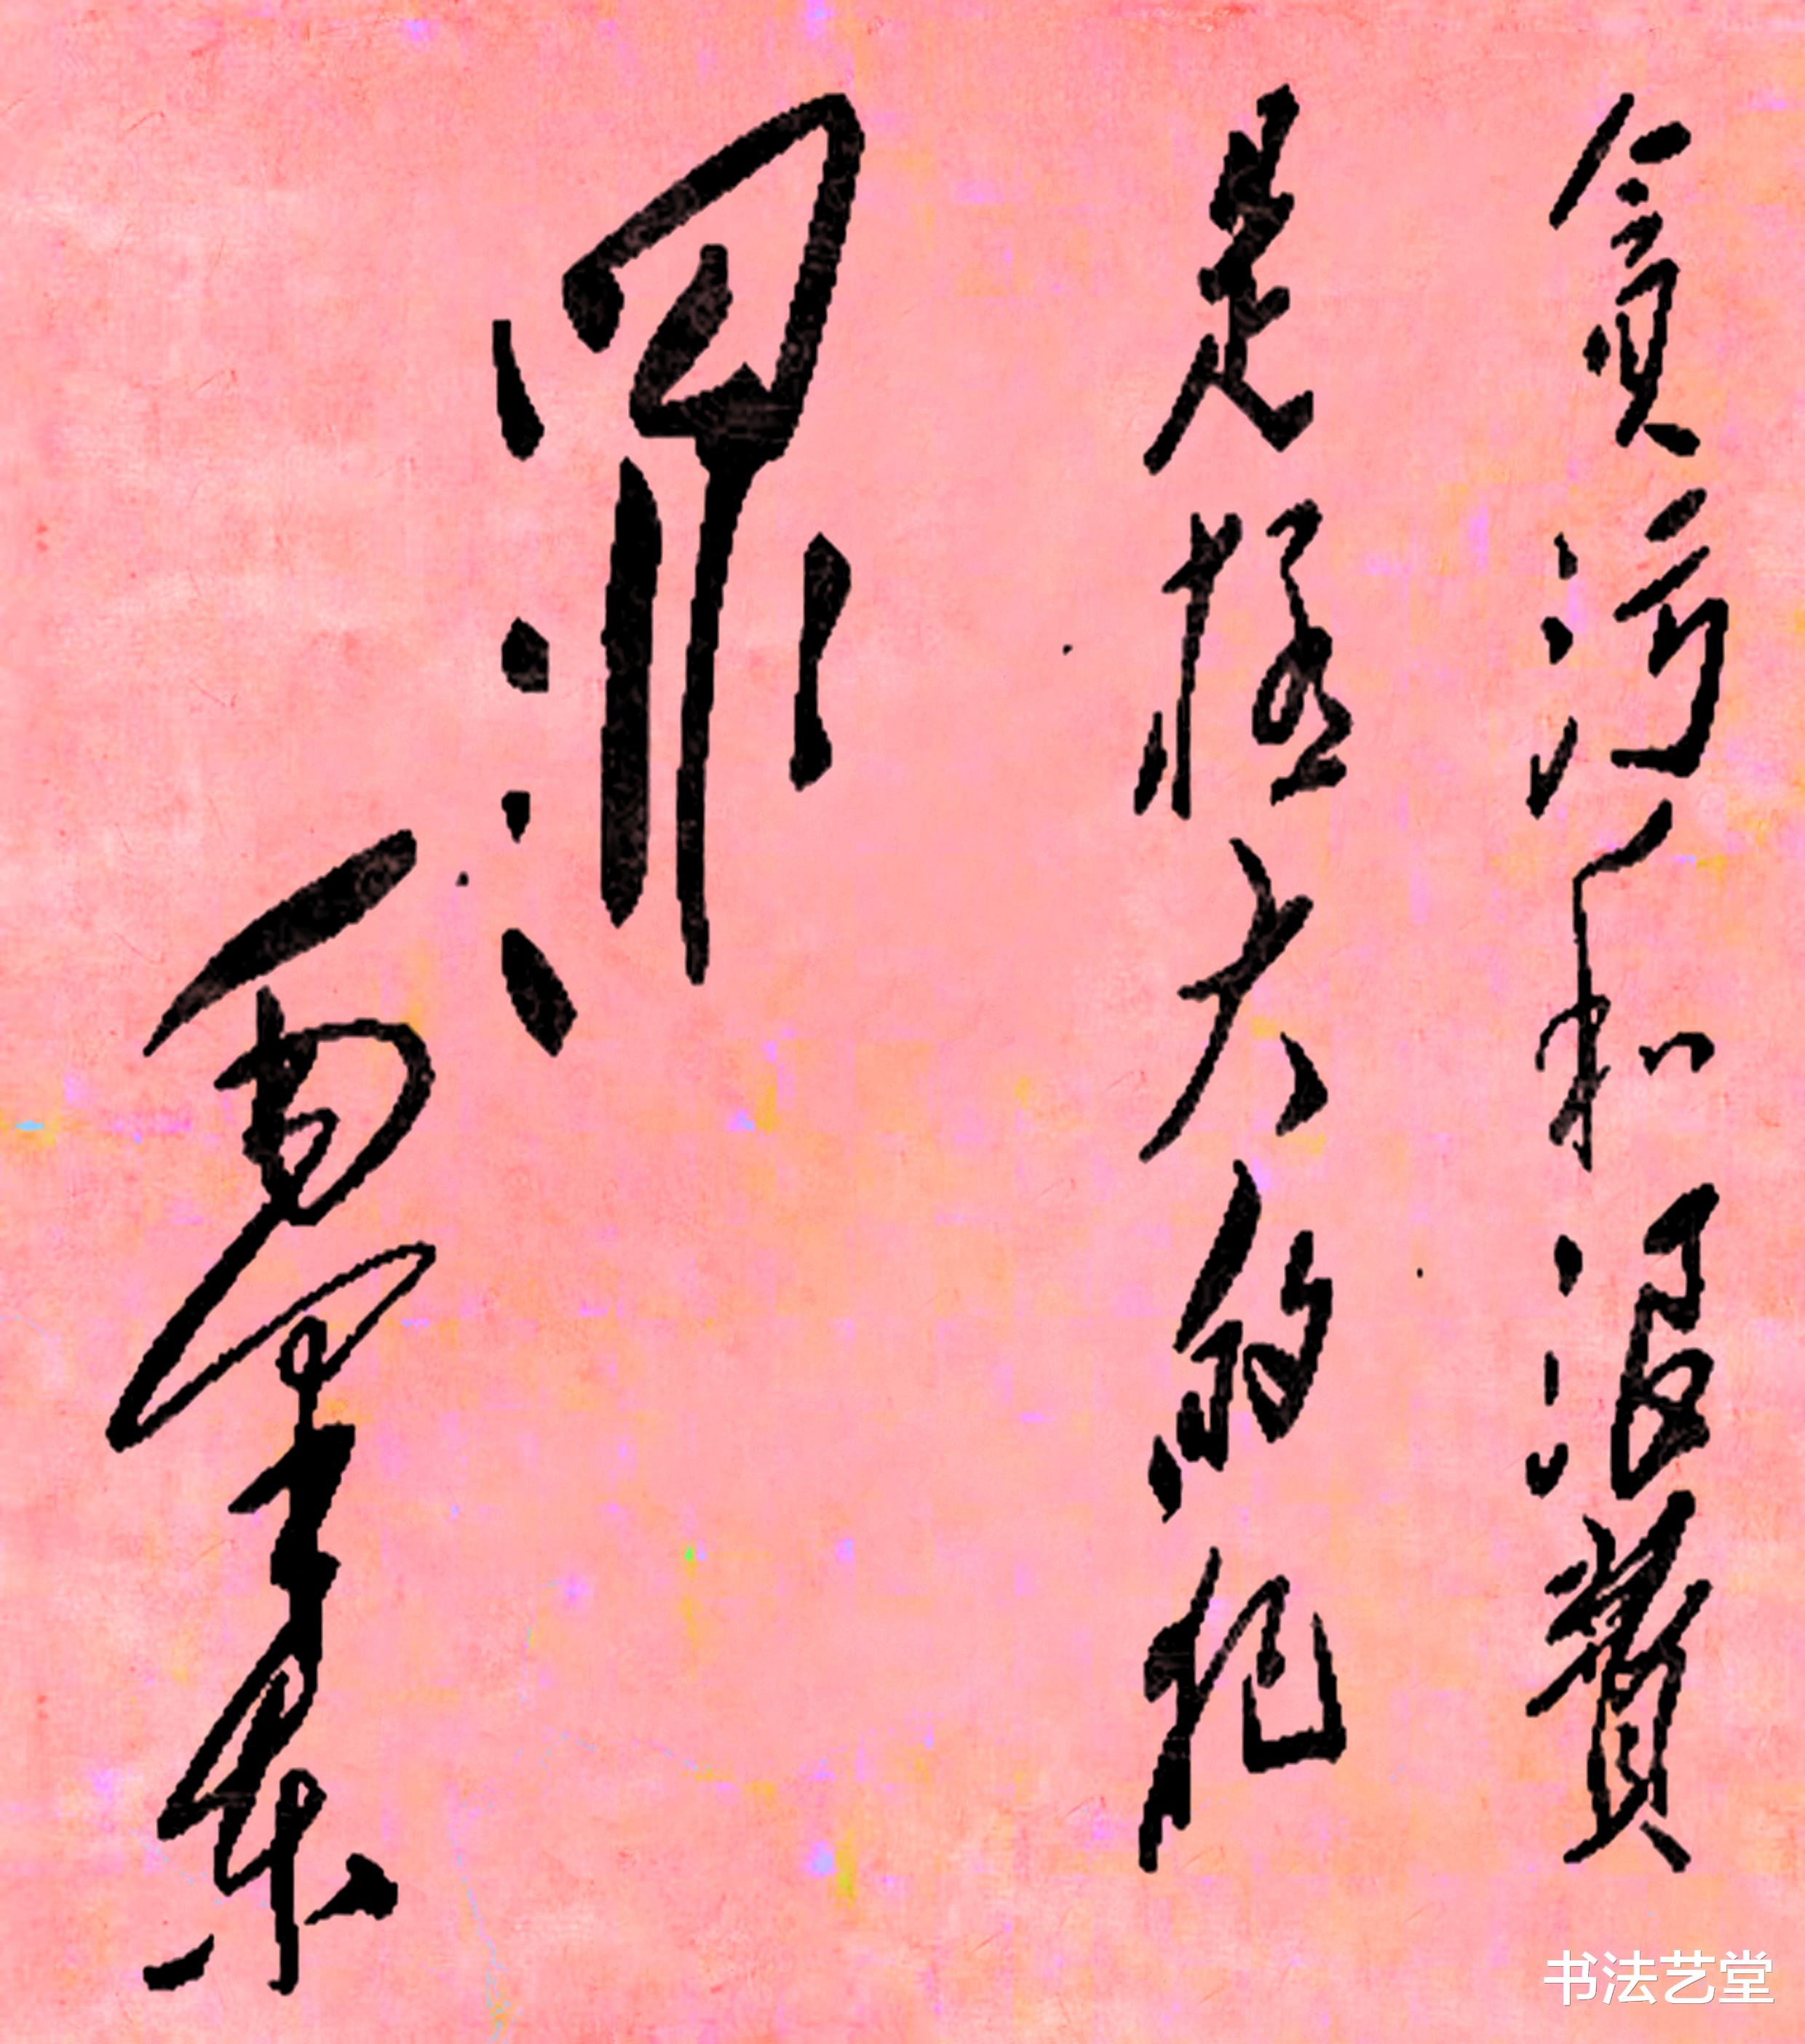 貪污和浪費
是极大的犯
罪
毛澤東
书法艺堂